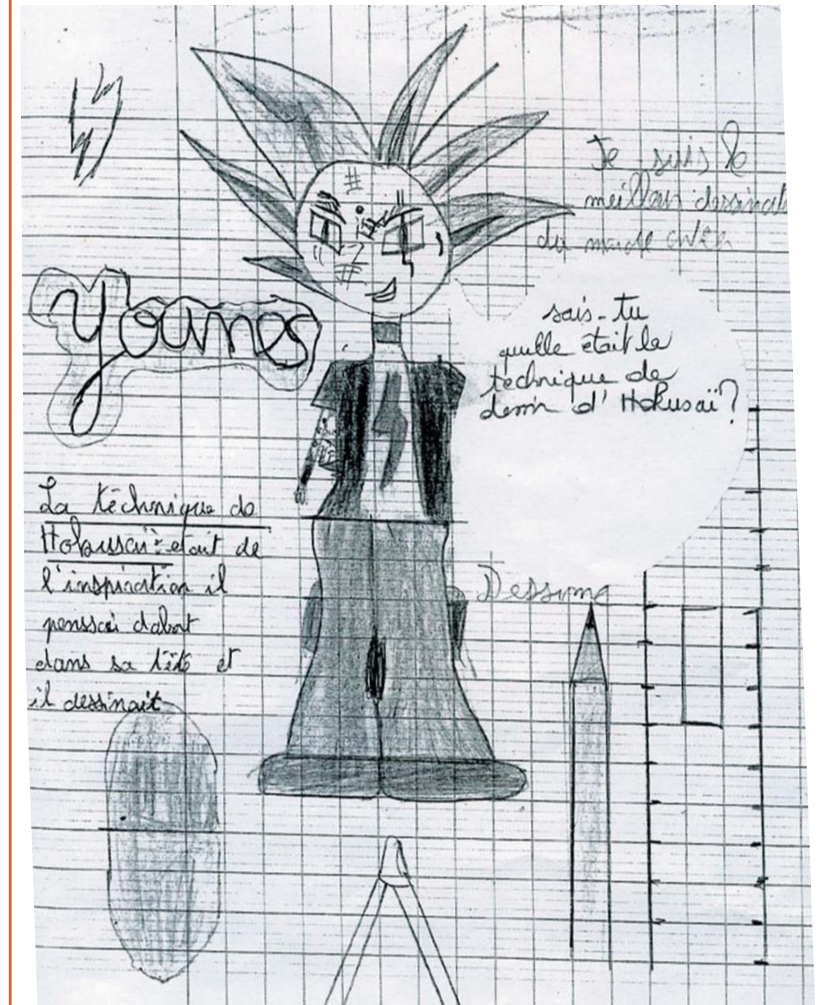 Je suis le
meilleur dessinat
du monde
Younes
sais-tu
quelle était la
technique de
dessin d'Hokusaï?
La téchnique de
Hokusaï : était de
l'inspiration il
penssai dabort
dans sa tête et
il dessinait
Dessine